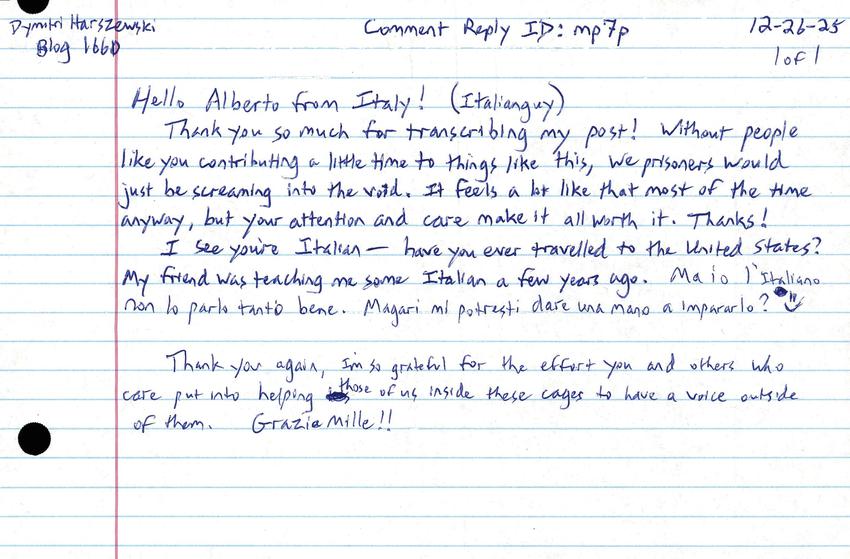 Dymitri Harszewski
Blog 1660
Comment Reply ID: mp7p
12-26-25
1 of 1
Hello Alberto from Italy! (Italianguy)
Thank you so much for transcribing my post! Without people
like you contributing a little time to things like this, we prisoners would
just be screaming into the void. It feels a lot like that most of the time
anyway, but your attention and care make it all worth it. Thanks!
I see you're Italian — have you ever travelled to the United States?
My friend was teaching me some Italian a few years ago. Ma io l'Italiano
non lo parlo tanto bene. Magari mi potresti dare una mano a impararlo?
Thank you again, I'm so grateful for the effort you and others who
care put into helping those of us inside these cages to have a voice outside
of them. Grazie Mille!!